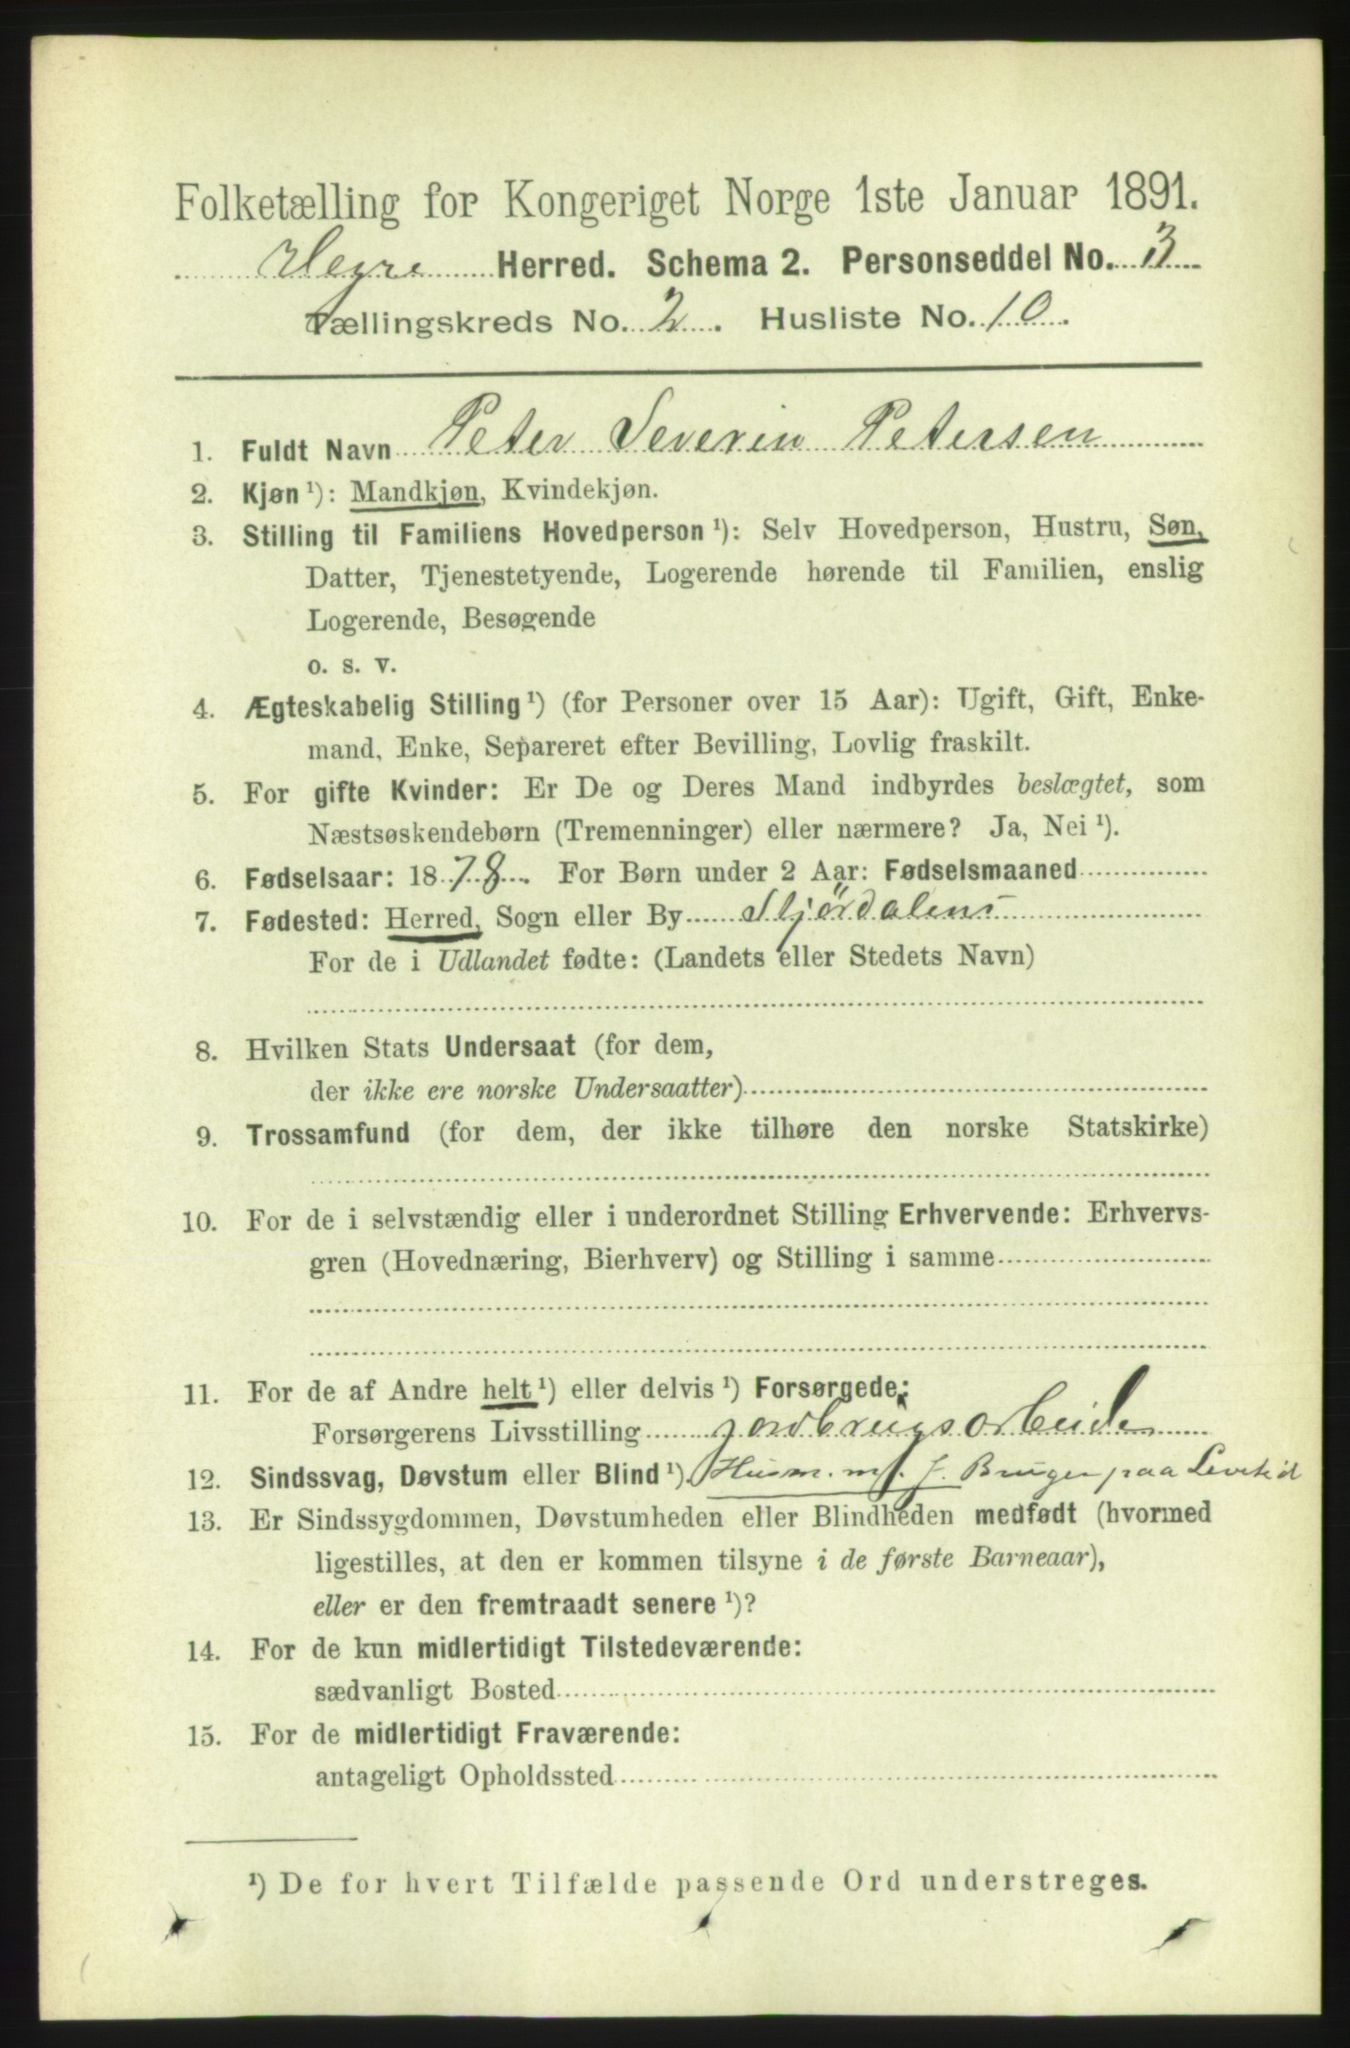 Folketælling for Kongeriget Norge 1ste Januar 1891.
Hegre Herred. Schema 2. Personseddel No. 3
Tællingskreds No. 2. Husliste No. 10.
1. Fuldt Navn Peter Severin Petersen
2. Kjøn ¹): Mandkjøn, Kvindekjøn.
3. Stilling til Familiens Hovedperson ¹): Selv Hovedperson, Hustru, Søn,
Datter, Tjenestetyende, Logerende hørende til Familien, enslig
Logerende, Besøgende
o. s. v.
4. Ægteskabelig Stilling ¹) (for Personer over 15 Aar): Ugift, Gift, Enke-
mand, Enke, Separeret efter Bevilling, Lovlig fraskilt.
5. For gifte Kvinder: Er De og Deres Mand indbyrdes beslægtet, som
Næstsøskendebørn (Tremenninger) eller nærmere? Ja, Nei ¹).
6. Fødselsaar: 1878. For Børn under 2 Aar: Fødselsmaaned
7. Fødested: Herred, Sogn eller By Stjördalens
For de i Udlandet fødte: (Landets eller Stedets Navn)
8. Hvilken Stats Undersaat (for dem,
der ikke ere norske Undersaatter)
9. Trossamfund (for dem, der ikke tilhøre den norske Statskirke)
10. For de i selvstændig eller i underordnet Stilling Erhvervende: Erhvervs-
gren (Hovednæring, Bierhverv) og Stilling i samme
11. For de af Andre helt ¹) eller delvis ¹) Forsørgede:
Forsørgerens Livsstilling jordbrugsarbeider
12. Sindssvag, Døvstum eller Blind ¹). Husm. m. J. Bruger paa Levetid
13. Er Sindssygdommen, Døvstumheden eller Blindheden medfødt (hvormed
ligestilles, at den er kommen tilsyne i de første Barneaar),
eller er den fremtraadt senere ¹)?
14. For de kun midlertidigt Tilstedeværende:
sædvanligt Bosted
15. For de midlertidigt Fraværende:
antageligt Opholdssted
¹) De for hvert Tilfælde passende Ord understreges.